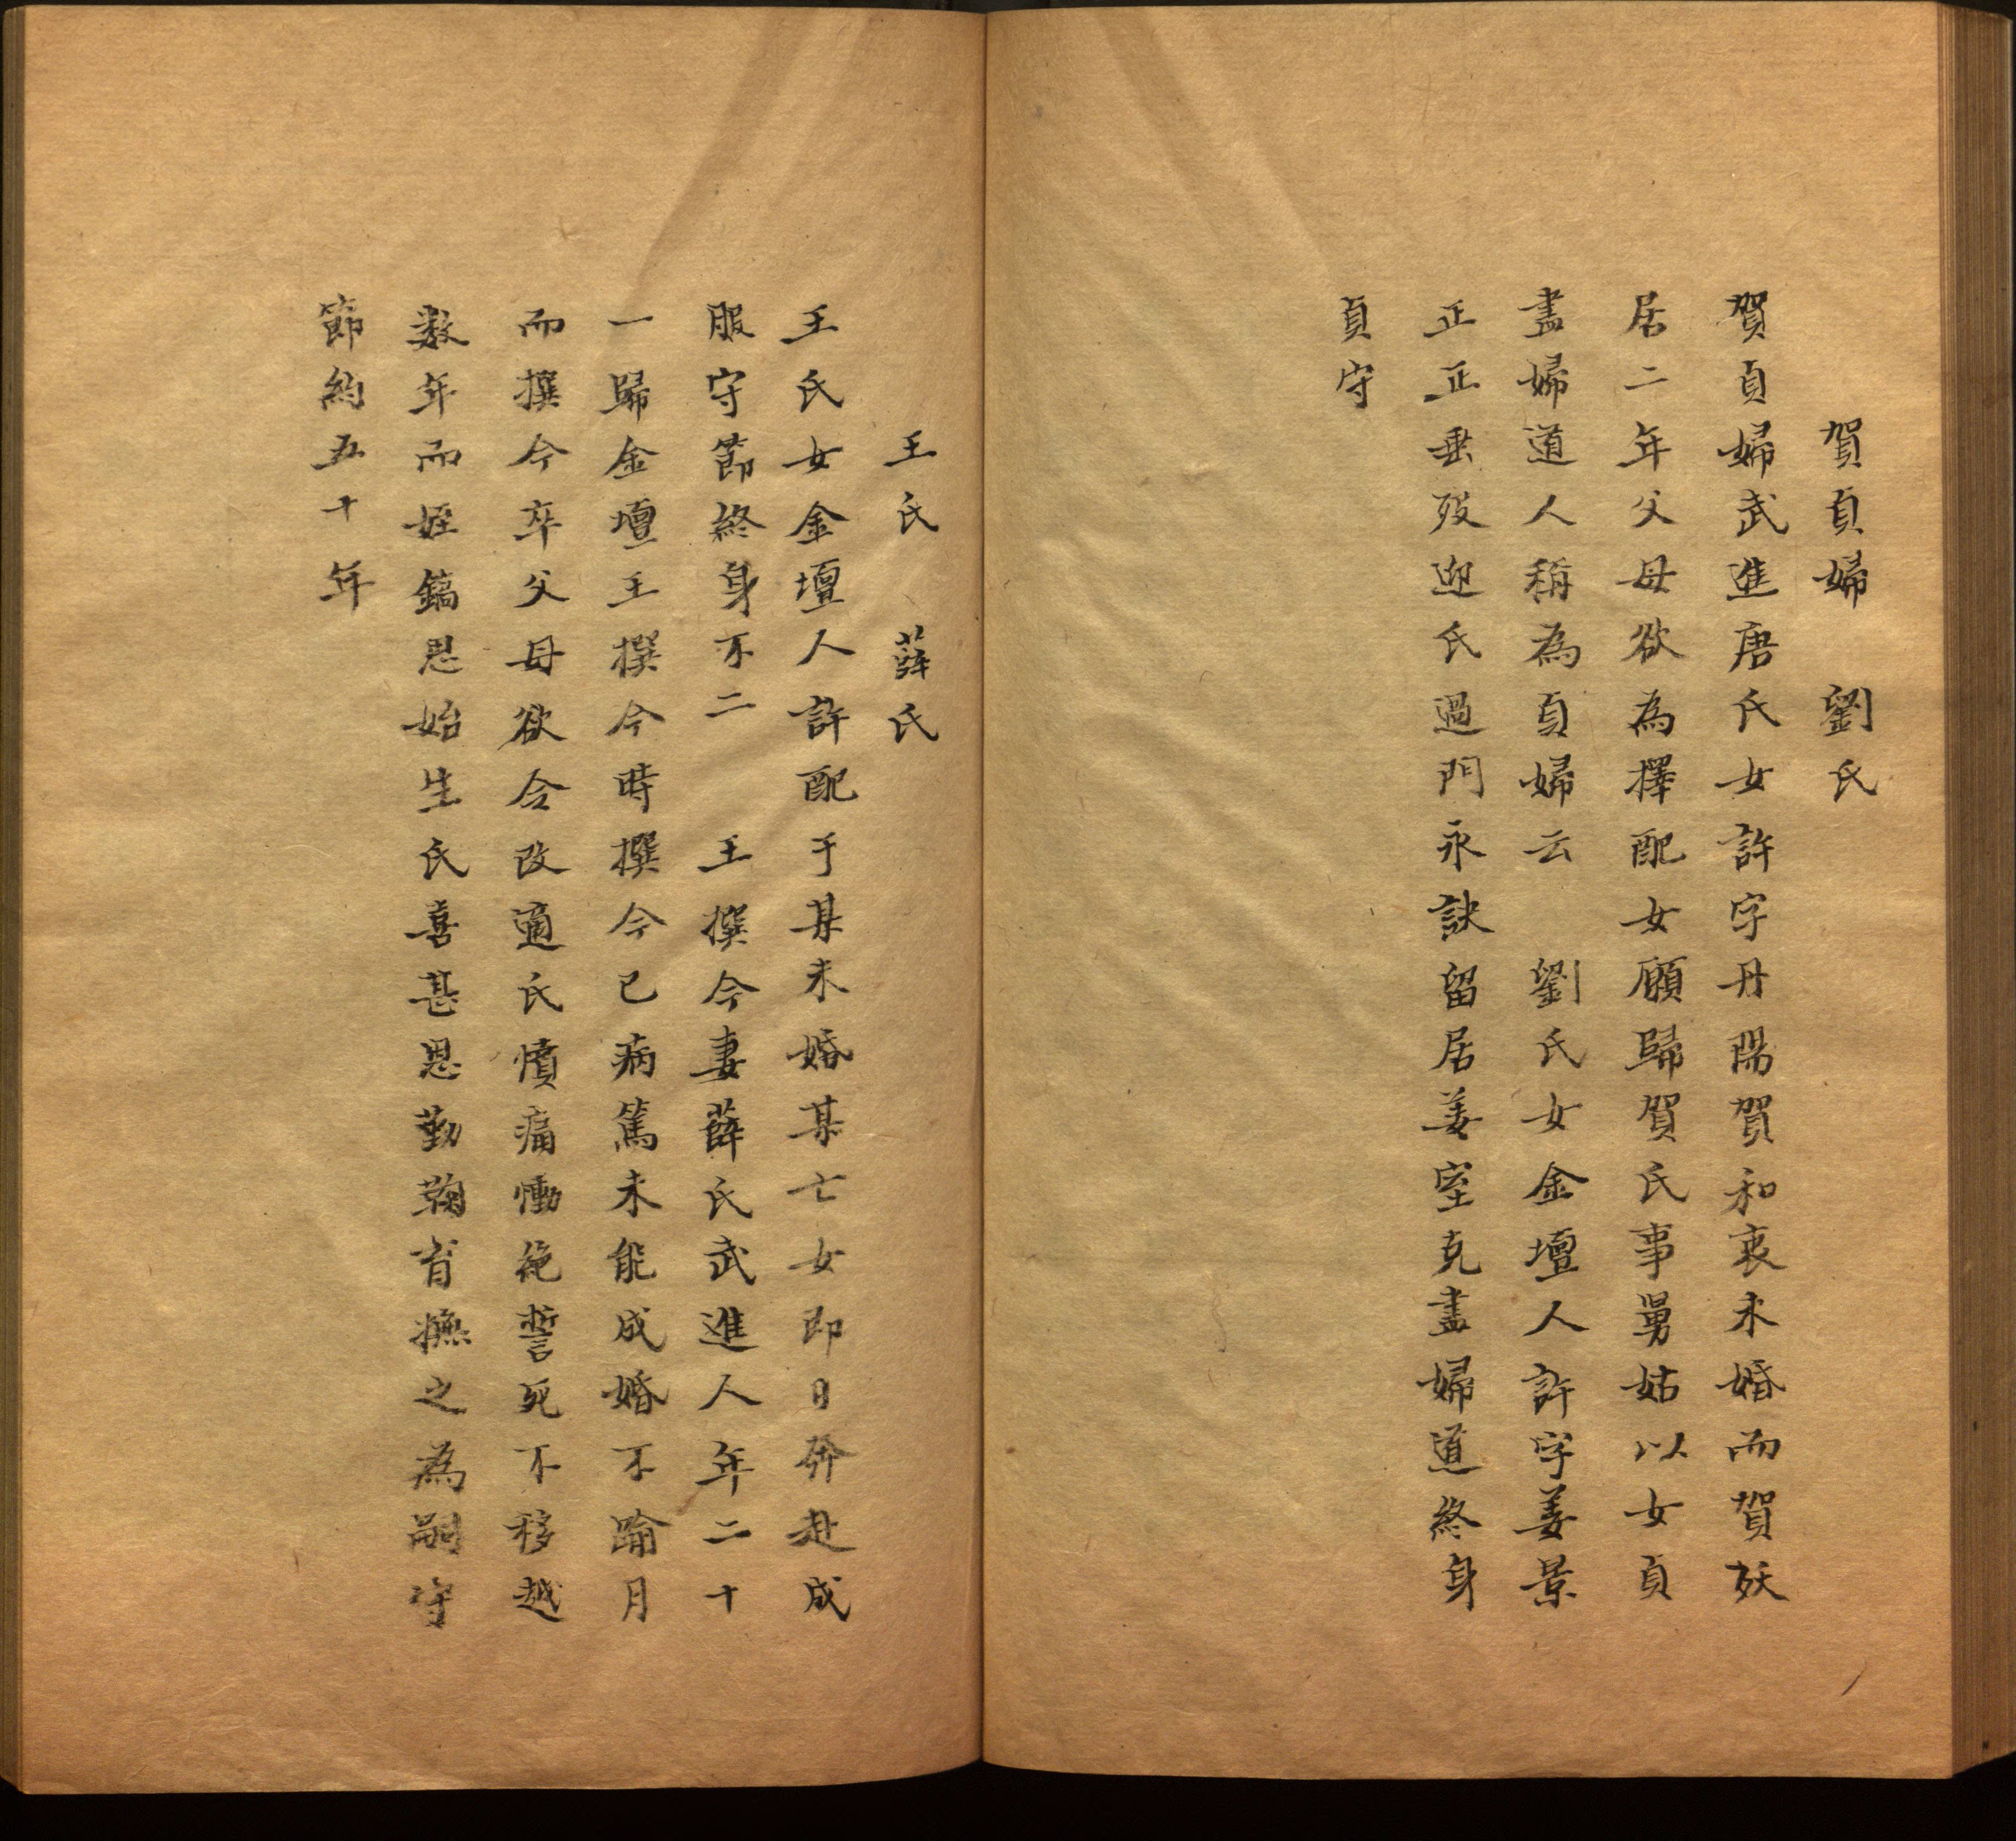 賀貞婦　劉氏
賀貞婦武進唐氏女許字丹陽賀和衷未婚而賀殀
居二年父母欲為擇配女願歸賀氏事舅姑以女貞
盡婦道人稱為貞婦云　劉氏女金壇人許字姜景
正正垂歿迎氏過門永訣留居姜室克盡婦道終身
貞守
王氏　薛氏
王氏女金壇人許配于某未婚某亡女即日奔赴成
服守節終身不二　王撰今妻薛氏武進人年二十
一歸金壇王撰今時撰今已病篤未能成婚不踰月
而撰今卒父母欲令改適氏憤痛慟絶誓死不移越
数年而姪鎬恩始生氏喜甚恩勤鞠育撫之為嗣守
節約五十年